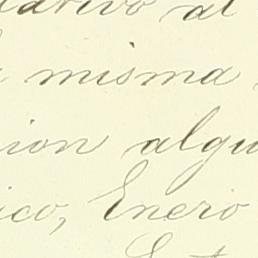 lativo al
misma
ion algu
ico, Enero